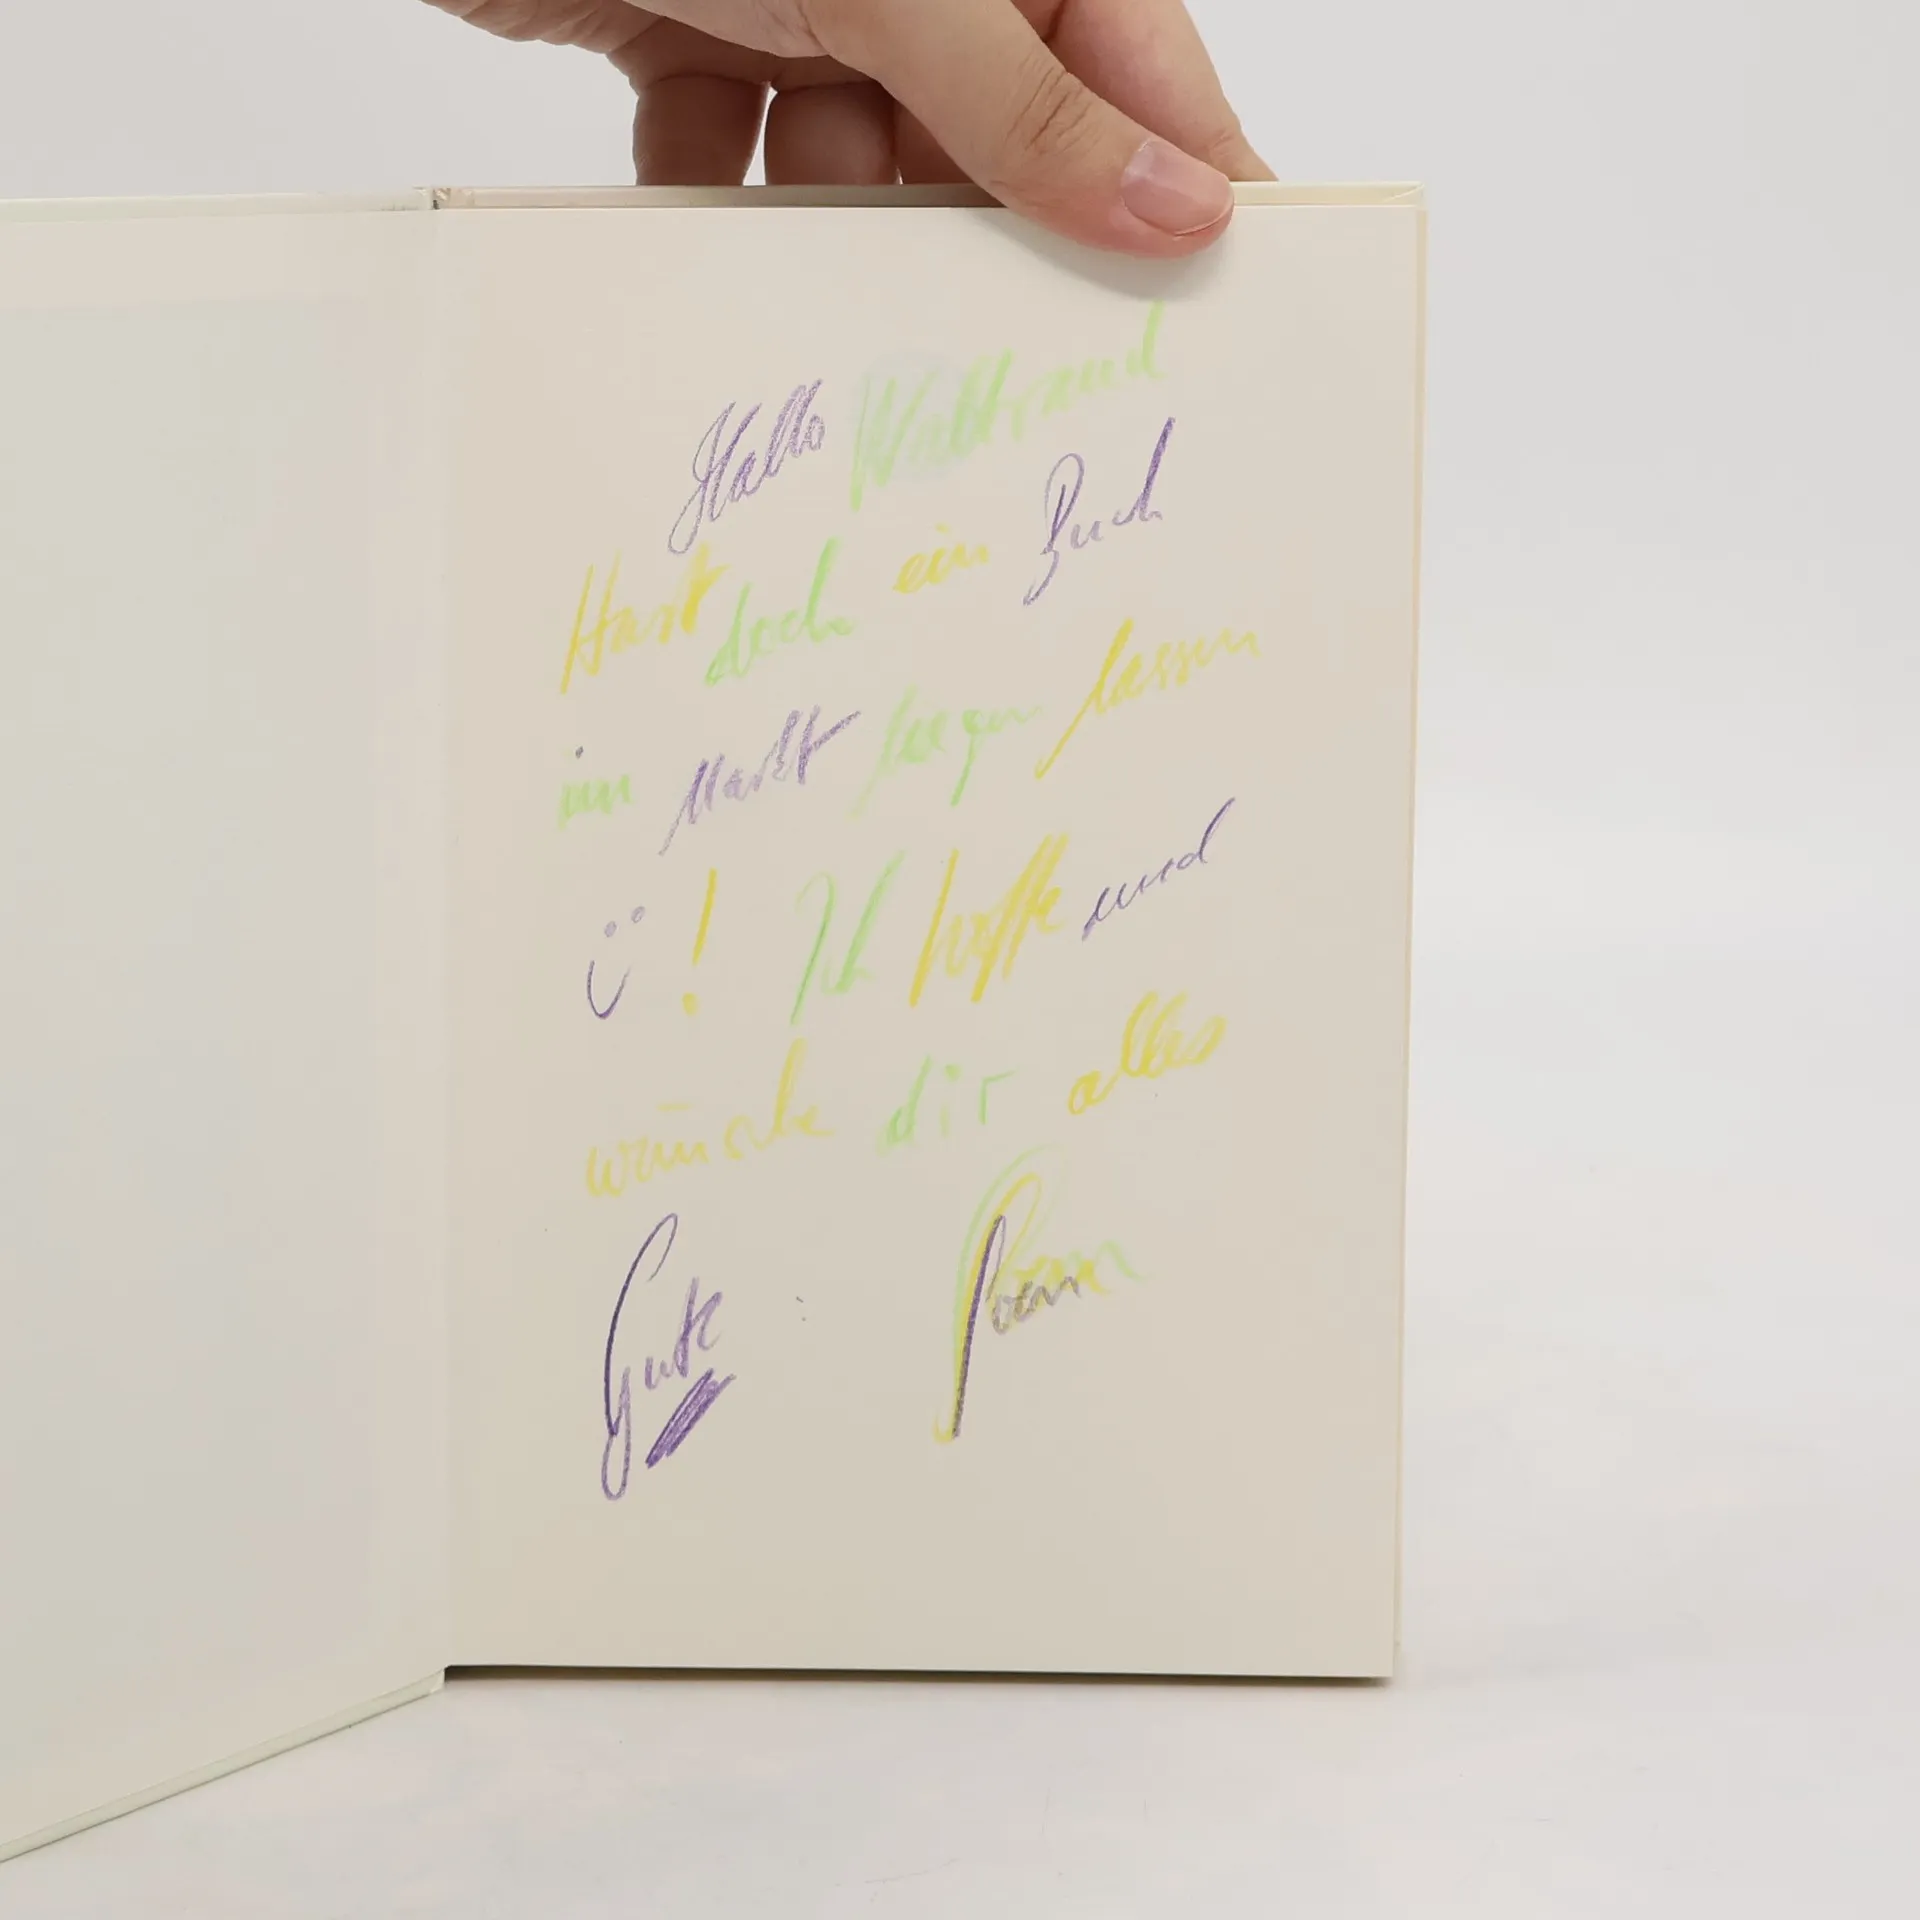 Hallo Waltraud
Hast doch ein Buch
im Markt liegen lassen
! Ich hoffe und
wünsche dir alles
Gute